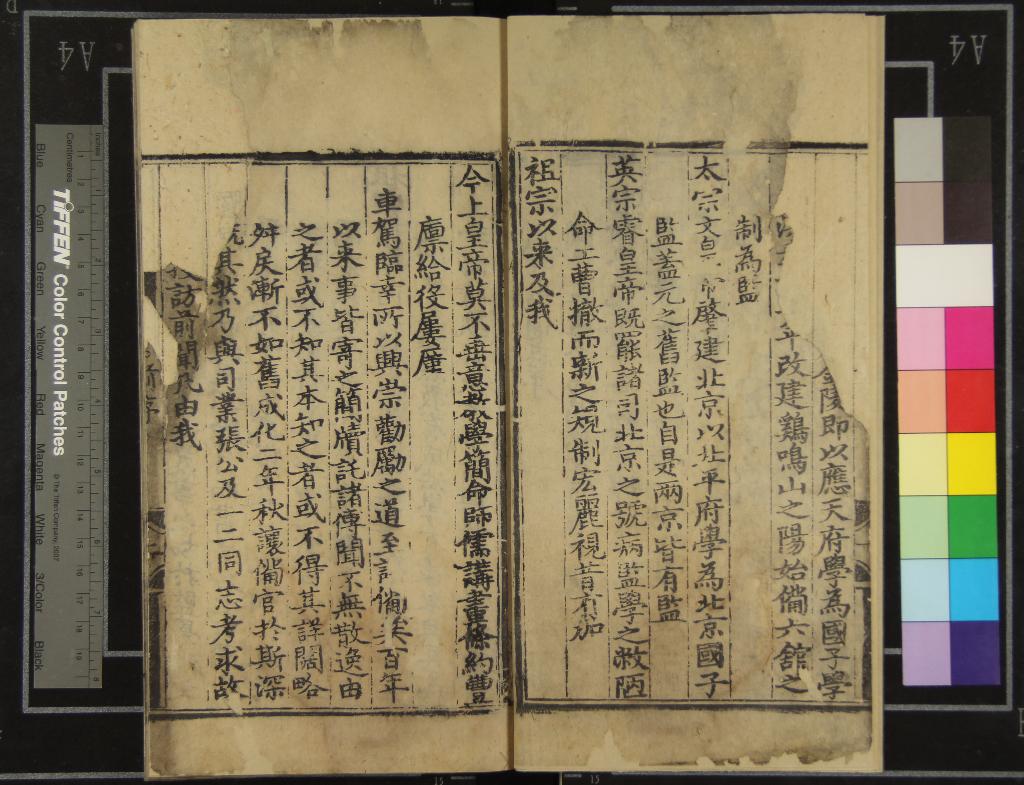 金陵即以應天府學為國子學
年改建鷄鳴山之陽始備六舘之
制為監
太宗文皇帝肇建北京以北平府學為北京國子
監蓋元之舊監也自是兩京皆有監
英宗睿皇帝既罷諸司北京之號病監學之敝陋
命工曹撤而新之規制宏麗視昔有加
祖宗以来及我
今上皇帝莫不垂意教學簡命師儒講畫條約豐
廪給役屢歷
車駕臨幸所以興崇勸勵之道至詳備矣百年
以来事皆寄之簡牘託諸傳聞不無散逸由
之者或不知其本知之者或不得其詳闊略
舛戾漸不如舊成化二年秋讓備官於斯深
其然乃與司業張公及一二同志考求故
訪前聞凡由我
A4
A4
TIFFEN Color Control Patches
© The Tiffen Company, 2007
Inches
Centimetres
Blue
Cyan
Green
Yellow
Red
Magenta
White
3/Color
Black
15
15